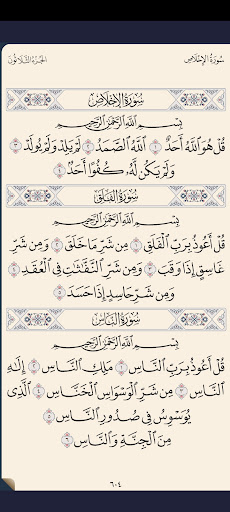 سُورَةُ الإِخْلَاصِ الجُزْءُ الثَّلَاثُونَ
سُورَةُ الإِخْلَاصِ
بِسْمِ ٱللَّهِ ٱلرَّحْمَٰنِ ٱلرَّحِيمِ
قُلْ هُوَ ٱللَّهُ أَحَدٌ ١ ٱللَّهُ ٱلصَّمَدُ ٢ لَمْ يَلِدْ وَلَمْ يُولَدْ ٣
وَلَمْ يَكُن لَّهُۥ كُفُوًا أَحَدٌۢ ٤
سُورَةُ الفَلَقِ
بِسْمِ ٱللَّهِ ٱلرَّحْمَٰنِ ٱلرَّحِيمِ
قُلْ أَعُوذُ بِرَبِّ ٱلْفَلَقِ ١ مِن شَرِّ مَا خَلَقَ ٢ وَمِن شَرِّ
غَاسِقٍ إِذَا وَقَبَ ٣ وَمِن شَرِّ ٱلنَّفَّٰثَٰتِ فِى ٱلْعُقَدِ ٤
وَمِن شَرِّ حَاسِدٍ إِذَا حَسَدَ ٥
سُورَةُ النَّاسِ
بِسْمِ ٱللَّهِ ٱلرَّحْمَٰنِ ٱلرَّحِيمِ
قُلْ أَعُوذُ بِرَبِّ ٱلنَّاسِ ١ مَلِكِ ٱلنَّاسِ ٢ إِلَٰهِ
ٱلنَّاسِ ٣ مِن شَرِّ ٱلْوَسْوَاسِ ٱلْخَنَّاسِ ٤ ٱلَّذِى
يُوَسْوِسُ فِى صُدُورِ ٱلنَّاسِ ٥
مِنَ ٱلْجِنَّةِ وَٱلنَّاسِ ٦
٦٠٤